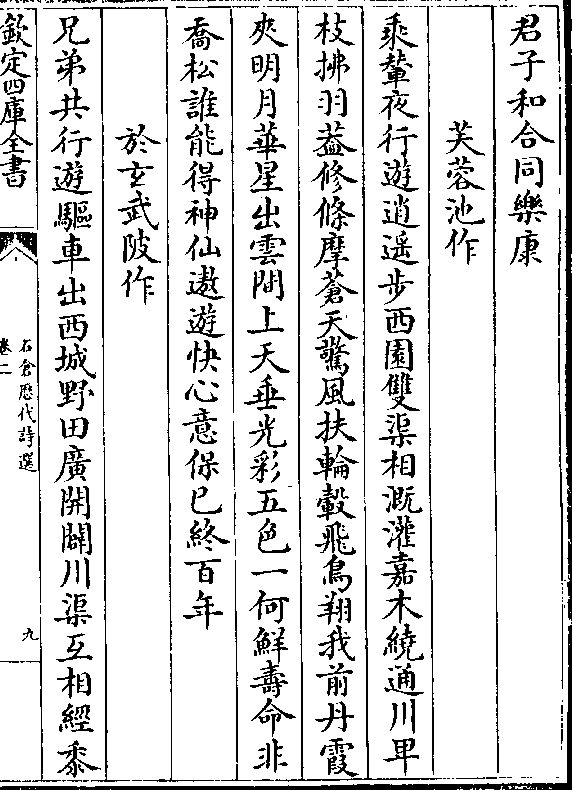 君子和合同樂康
芙蓉池作
乘輦夜行遊逍遙步西園雙渠相溉灌嘉木繞通川卑
枝拂羽葢修條摩蒼天驚風扶輪轂飛鳥翔我前丹霞
夾明月華星出雲間上天垂光彩五色一何鮮壽命非
喬松誰能得神仙遨遊快心意保已終百年
於玄武陂作
兄弟共行遊驅車出西城野田廣開闢川渠互相經黍
欽定四庫全書
石倉歷代詩選
卷二
九